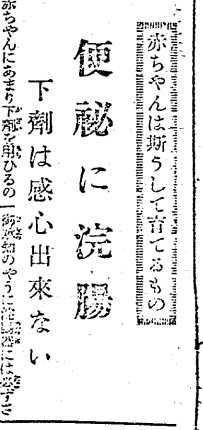 赤ちゃんは斯うして育てるもの
便祕に浣腸
下劑は感心出來ない
赤ちゃんにあまり下劑を用ひるの